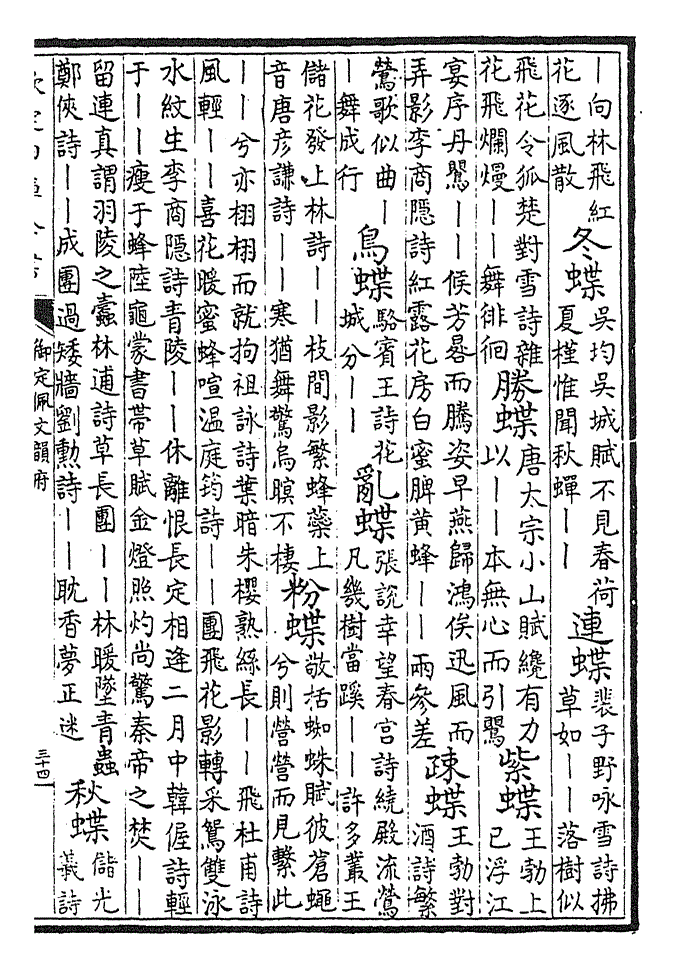 ｜向林飛紅
花逐風散
冬蝶
吳均吳城賦不見春荷
夏槿惟聞秋蟬｜｜
連蝶
裴子野咏雪詩拂
草如｜｜落樹似
飛花令狐楚對雪詩雜
花飛爛熳｜｜舞徘徊
勝蝶
唐太宗小山賦纔有力
以｜｜本無心而引鸎
紫蝶
王勃上
已浮江
宴序丹鸎｜｜候芳晷而騰姿早燕歸鴻俟迅風而
弄影李商隱詩紅露花房白蜜脾黃蜂｜｜兩參差
疎蝶
王勃對
酒詩繁
鶯歌似曲｜
｜舞成行
鳥蝶
駱賓王詩花
城分｜｜
亂蝶
張說幸望春宫詩繞殿流鶯
凡幾樹當蹊｜｜許多叢王
儲花發上林詩｜｜枝間影繁蜂蘂上
音唐彦謙詩｜｜寒猶舞驚烏暝不棲
粉蝶
敬括蜘蛛賦彼蒼蠅
兮則營營而見繫此
｜｜兮亦栩栩而就拘祖詠詩葉暗朱櫻熟絲長｜｜飛杜甫詩
風輕｜｜喜花暖蜜蜂喧温庭筠詩｜｜團飛花影轉采鴛雙泳
水紋生李商隱詩青陵｜｜休離恨長定相逢二月中韓偓詩輕
于｜｜瘦于蜂陸龜蒙書帶草賦金燈照灼尚驚秦帝之焚｜｜
留連真謂羽陵之蠹林逋詩草長團｜｜林暖墜青蟲
鄭俠詩｜｜成團過矮牆劉勲詩｜｜耽香夢正迷
秋蝶
儲光
羲詩
御定佩文韻府
三十四